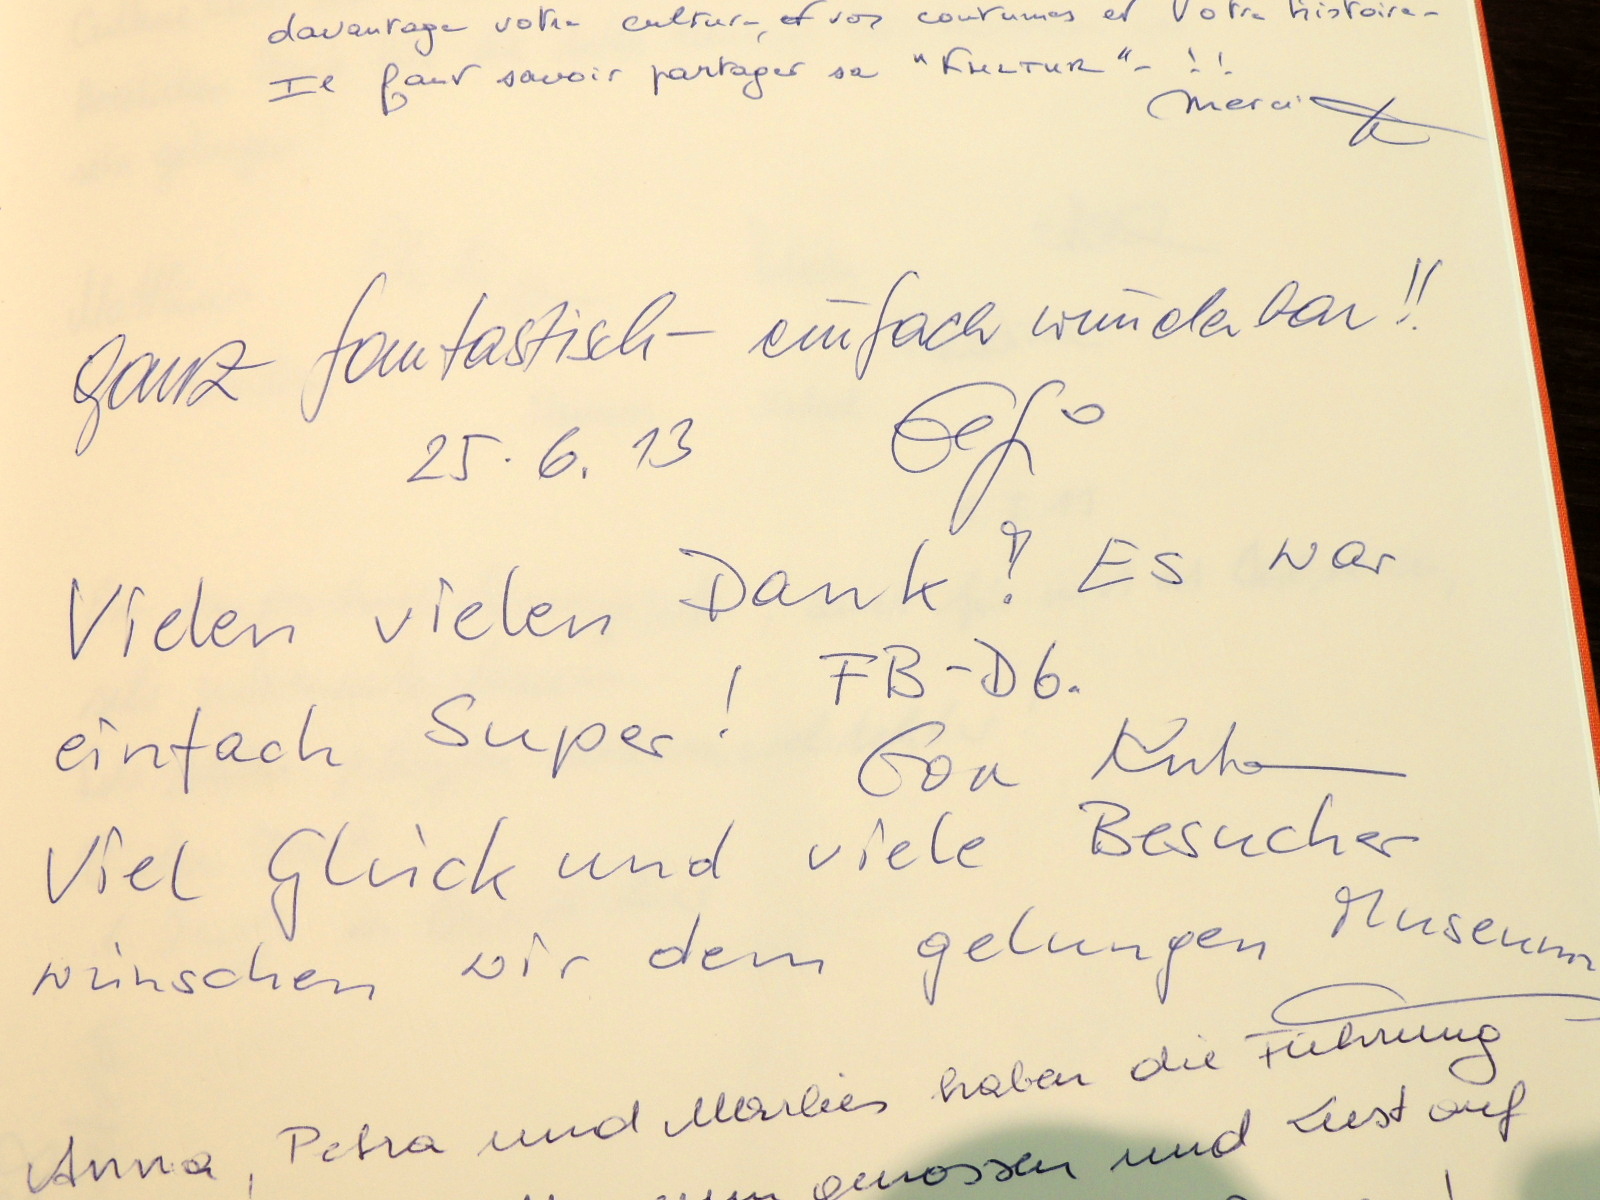 davantage votre culture, et vos coutumes et votre histoire.
Il faut savoir partager sa "KULTUR" - !!
Merci
ganz fantastisch - einfach wunderbar!!
25. 6. 13
Vielen vielen Dank! Es war
einfach Super! FB-Db.
Viel Glück und viele Besucher
wünschen wir dem gelungen Museum
Anna, Petra und Marlies haben die Führung
genossen und Lust auf